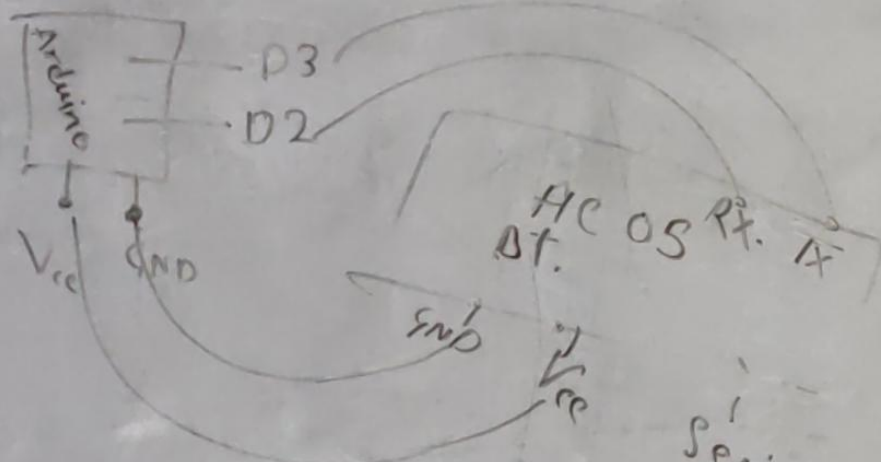 Arduino
D3
D2
Vcc
GND
HC 05 Rx. Tx
BT.
GND
Vcc